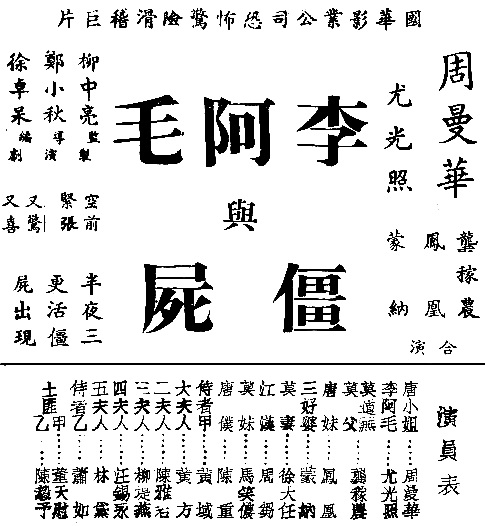 國華影業公司恐怖驚險滑稽巨片
周曼華
尤光照
龔稼農
鳳凰
蒙納
合演
李阿毛
與
僵屍
柳中亮監製
鄭小秋導演
徐卓呆編劇
空前
緊張
又驚
又喜
半夜三
更活僵
屍出現
演員表
唐小姐……周曼華
李阿毛……尤光照
莫父……龔稼農
唐妹……鳳凰
三好婆……蒙納
莫妻……徐大任
江……周
莫妹……馬笑儂
唐僕……陳重
侍者甲……黃域
大夫人……黃方
二夫人……陳雅
三夫人……柳堤燕
四夫人……汪錫永
五夫人……林黛
侍者乙……蕭如
土匪甲……董天慰
土匪乙……陳毅予